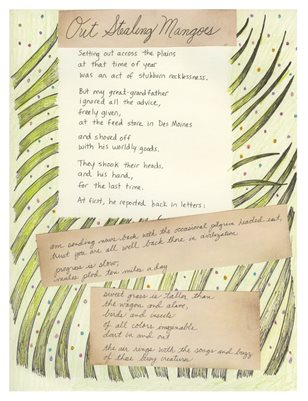 Out Stealing Mangoes
Setting out across the plains
at that time of year
was an act of stubborn recklessness.
But my great-grandfather
ignored all the advice,
freely given,
at the feed store in Des Moines
and shoved off
with his worldly goods.
They shook their heads,
and his hand,
for the last time.
At first, he reported back in letters:
am sending news back with the occasional pilgrim headed east,
trust you are all well back there in civilization
progress is slow,
mules plod ten miles a day
sweet grass is taller than
the wagon and alive,
birds and insects
of all colors imaginable
dart in and out
the air rings with the songs and buzz
of these tiny creatures